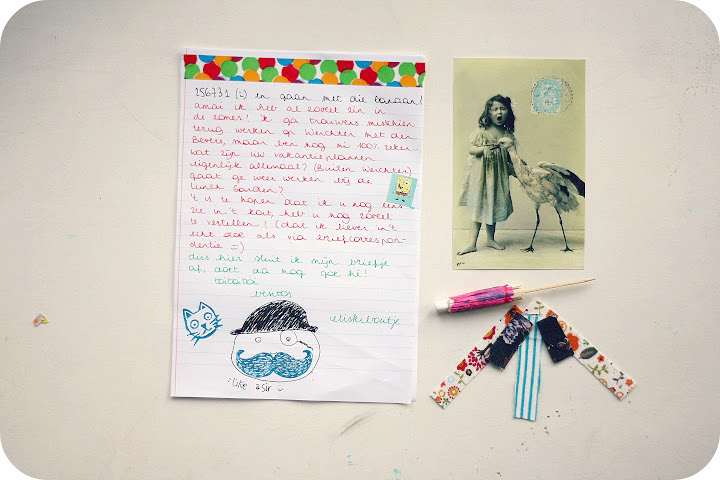 256731 (:) en gaan met die banaan!
amai ik heb al zoveel zin in
de zomer! ik ga trouwens misschien
terug werken op Werchter met den
Bevers, maar ben nog ni 100% zeker..
wat zijn uw vakantieplannen
eigenlijk allemaal? (buiten Werchter)
gaat ge weer werken bij de
Lunch Garden?
't is te hopen dat ik u nog eens
zie in 't kort, heb u nog zoveel
te vertellen! (dat ik liever in't
echt doe als via briefcorrespon-
dentie :-)
dus hier sluit ik mijn briefje
af, doet da nog goe hé!
eliskiboutje
like a sir